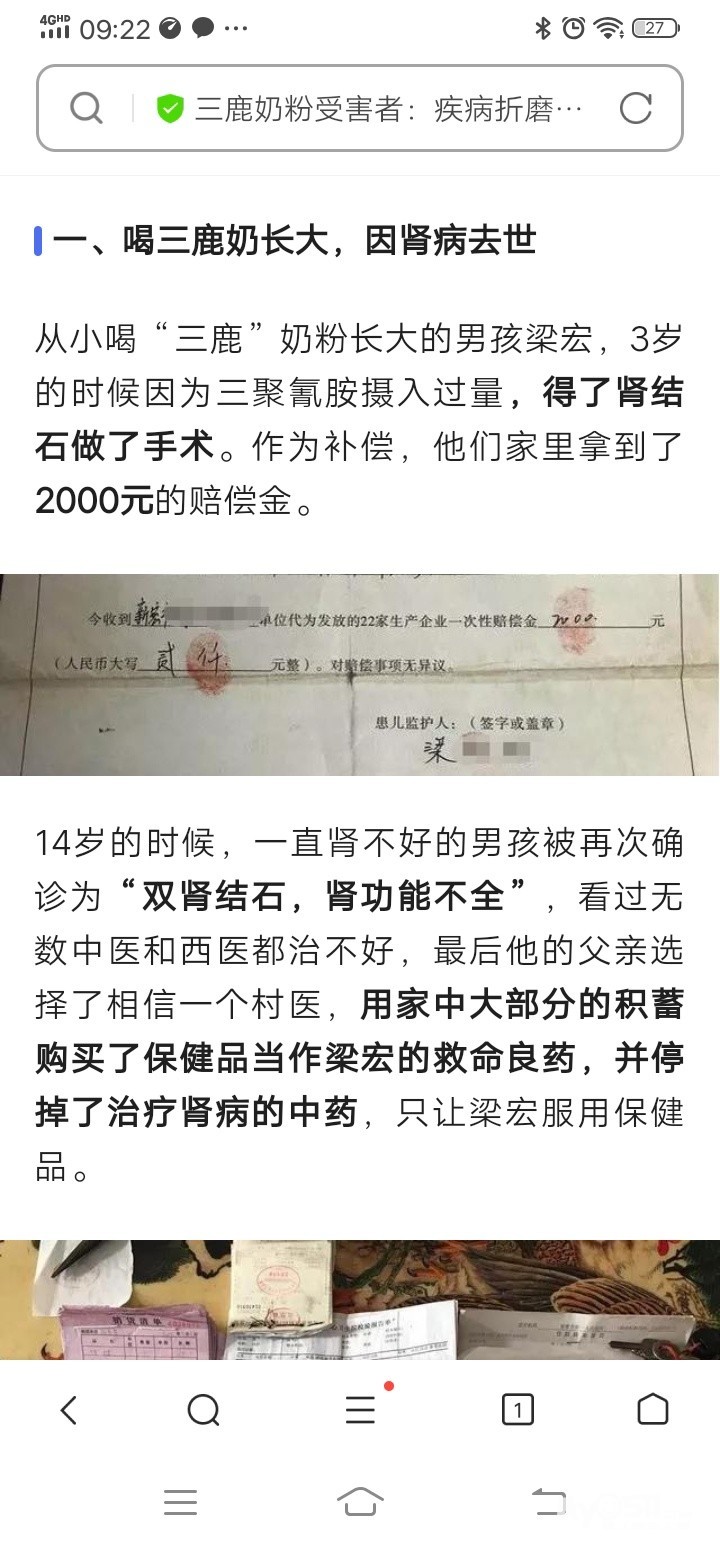 4GHD 09:22 ··· 27
三鹿奶粉受害者：疾病折磨···
一、喝三鹿奶长大，因肾病去世
从小喝“三鹿”奶粉长大的男孩梁宏，3岁
的时候因为三聚氰胺摄入过量，得了肾结
石做了手术。作为补偿，他们家里拿到了
2000元的赔偿金。
今收到 单位代为发放的22家生产企业一次性赔偿金 2000. 元
（人民币大写 贰仟. 元整）。对赔偿事项无异议。
患儿监护人：（签字或盖章）
梁
14岁的时候，一直肾不好的男孩被再次确
诊为“双肾结石，肾功能不全”，看过无
数中医和西医都治不好，最后他的父亲选
择了相信一个村医，用家中大部分的积蓄
购买了保健品当作梁宏的救命良药，并停
掉了治疗肾病的中药，只让梁宏服用保健
品。
销货清单
1